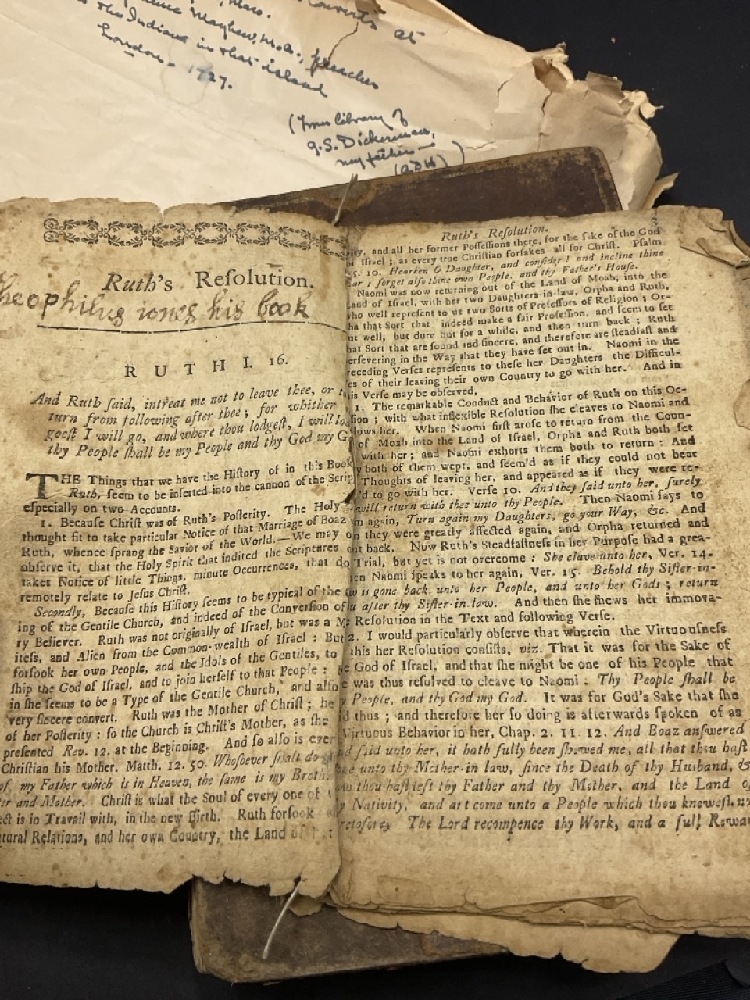 onverts at
Mayhew, M.A., preacher
the Indians in that island
London - 1727.
(From library of
G.S. Dickerman,
my father —
(ADH) )
Ruth's Reſolution.
Theophilus iones his book
RUTH I. 16.
And Ruth ſaid, intreat me not to leave thee, or t
turn from following after thee; for whither
goeſt I will go, and where thou lodgeſt, I will lo
thy People ſhall be my People and thy God my G
THE Things that we have the Hiſtory of in this Book
Ruth, ſeem to be inſerted into the cannon of the Scrip
eſpecially on two Accounts.
1. Becauſe Chriſt was of Ruth's Poſterity. The Holy
thought fit to take particular Notice of that Marriage of Boaz
Ruth, whence ſprang the Savior of the World.—We may
obſerve it, that the Holy Spirit that indited the Scriptures
takes Notice of little Things, minute Occurrences, that do
remotely relate to Jeſus Chriſt.
Secondly, Becauſe this Hiſtory ſeems to be typical of the
ing of the Gentile Church, and indeed of the Converſion of
ry Believer. Ruth was not originally of Iſrael, but was a M
iteſs, and Alien from the Common-wealth of Iſrael: But
forſook her own People, and the Idols of the Gentiles, to
ſhip the God of Iſrael, and to join herſelf to that People:
in ſhe ſeems to be a Type of the Gentile Church, and alſo
very ſincere convert. Ruth was the Mother of Chriſt; he
of her Poſterity: ſo the Church is Chriſt's Mother, as ſhe
preſented Rev. 12. at the Beginning. And ſo alſo is ever
Chriſtian his Mother. Matth. 12. 50. Whoſoever ſhall do
of my Father which is in Heaven, the ſame is my Broth
er and Mother. Chriſt is what the Soul of every one of
ect is in Travail with, in the new Birth. Ruth forſook
tural Relations, and her own Country, the Land
Ruth's Reſolution. 3
ry, and all her former Poſſeſſions there, for the ſake of the God
Iſrael; as every true Chriſtian forſakes all for Chriſt. Pſalm
45. 10. Hearken O Daughter, and conſider! and incline thine
Ear; forget alſo thine own People, and thy Father's Houſe.
Naomi was now returning out of the Land of Moab, into the
Land of Iſrael, with her two Daughters in-law, Orpha and Ruth,
who well repreſent to us two Sorts of Profeſſors of Religion; Or-
pha that Sort that indeed make a fair Profeſſion, and ſeem to ſet
out well, but dure but for a while, and then turn back; Ruth
that Sort that are ſound and ſincere, and therefore are ſtedfaſt and
perſevering in the Way that they have ſet out in. Naomi in the
receding Verſes repreſents to theſe her Daughters the Difficul-
es of their leaving their own Country to go with her. And in
is Verſe may be obſerved,
1. The remarkable Conduct and Behavior of Ruth on this Oc-
ſion; with what inflexible Reſolution ſhe cleaves to Naomi and
llows her. When Naomi firſt aroſe to return from the Coun-
of Moab into the Land of Iſrael, Orpha and Ruth both ſet
with her; and Naomi exhorts them both to return: And
y both of them wept, and ſeem'd as if they could not bear
Thoughts of leaving her, and appeared as if they were re-
d to go with her. Verſe 10. And they ſaid unto her, ſurely
will return with thee unto thy People. Then Naomi ſays to
m again, Turn again my Daughters, go your Way, &c. And
n they were greatly affected again, and Orpha returned and
nt back. Now Ruth's Steadfaſtneſs in her Purpoſe had a grea-
Trial, but yet is not overcome: She clave unto her, Ver. 14.
en Naomi ſpeaks to her again, Ver. 15. Behold thy Siſter-in-
w is gone back unto her People, and unto her Gods; return
u after thy Siſter-in-law. And then ſhe ſhews her immova-
Reſolution in the Text and following Verſe.
2. I would particularly obſerve that wherein the Virtuouſneſs
this her Reſolution conſiſts, viz. That it was for the Sake of
e God of Iſrael, and that ſhe might be one of his People that
e was thus reſolved to cleave to Naomi: Thy People ſhall be
y People, and thy God my God. It was for God's Sake that ſhe
d thus; and therefore her ſo doing is afterwards ſpoken of as
Virtuous Behavior in her, Chap. 2. 11. 12. And Boaz anſwered
d ſaid unto her, it hath fully been ſhewed me, all that thou haſt
ne unto thy Mother-in law, ſince the Death of thy Huſband, &
w thou haſt left thy Father and thy Mother, and the Land o
y Nativity, and art come unto a People which thou knoweſt n
retofore, The Lord recompence thy Work, and a full Rewa